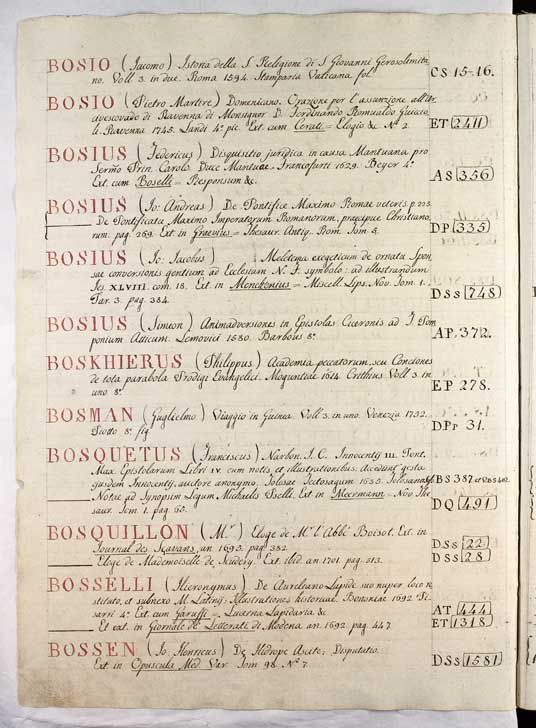 BOSIO (Iacomo) Istoria della S. Religione di S. Giovanni Gerosolimita
no. Voll 3. in due. Roma 1594. Stamparia Vaticana fol. CS 15-16.
BOSIO (Pietro Martire) Domenicano. Orazione per l'assunzione all'Ar
civescovado di Ravenna di Monsignor D. Ferdinando Romualdo Guiccio
li. Ravenna 1745. Landi 4° pic. Ext. cum Cerati = Elogio &c N° 2. ET 2411
BOSIUS (Federicus) Disquisitio juridica in causa Mantuana pro
Sermo Prin. Carolo Duce Mantuae. Francofurti 1629. Beyer 4°
Ext. cum Boselli = Responsum &c. AS 356
BOSIUS (Io: Andreas) De Pontifice Maximo Romae veteris p. 225.
De Pontificatu Maximo Imperatorum Romanorum, praecipue Christiano,
rum. pag. 269. Ext in Graevius = Thesaur. Antiq. Rom. Tom 5. DP 335
BOSIUS (Io: Iacobus) Meletema exegeticum de ornatu Spon
sae conversionis gentium ad Ecclesiam N. T. symbolo: ad illustrandum
Jes. XLVIII. com. 18. Ext. in Menckenius = Miscell. Lips. Nov. Tom. 1.
Par. 3. pag. 384. DSs 748
BOSIUS (Simeon) Animadversiones in Epistolas Ciceronis ad T. Pom
ponium Atticum. Lemovici 1580. Barbous 8° AP. 372.
BOSKHIERUS (Philippus) Academia peccatorum, seu Conciones
de tota parabola Prodigi Evangelici. Moguntiae 1614. Crithius Voll 3. in
uno 8° EP 278.
BOSMAN (Guglielmo) Viaggio in Guinea. Voll 3. in uno. Venezia 1752.
8° fig. DPp 31.
BOSQUETUS (Franciscus) Narbon. I. C. Innocentij III. Pont.
Max. Epistolarum Libri IV. cum notis, et illustrationibus. Accedunt gesta
ejusdem Innocentij, auctore anonymo. Tolosae Tectosagum 1635. BS 387
Notae ad Synopsim Legum Michaelis Pselli. Ext in Meermann = Nov. The
saur. Tom 1. pag 65. DQ 491
BOSQUILLON (Mr.) Eloge de Mr. l'Abbé Boisot. Ext. in
Journal des Sçavans, an 1695. pag. 352. DSs 22
Eloge de Mademoiselle de Scudery. Ext. ibid. an 1701. pag. 513. DSs 28
BOSSELLI (Hieronymus) De Aureliano Lapide suo nuper loco re
stituto, et subnexo M. Illustrationes historicae. Bononiae 1692. Pi
sarri 4° Ext cum Garuffi = Lucerna Lapidaria &c AT 444
Et ext. in Giornale de Letterati di Modena an. 1692. pag. 447. ET 1318
BOSSEN (Io: Henricus) De Hidrope Ascite; Disputatio.
Ext in Opuscula Med. Var. Tom 98. N° 7. DSs 1581